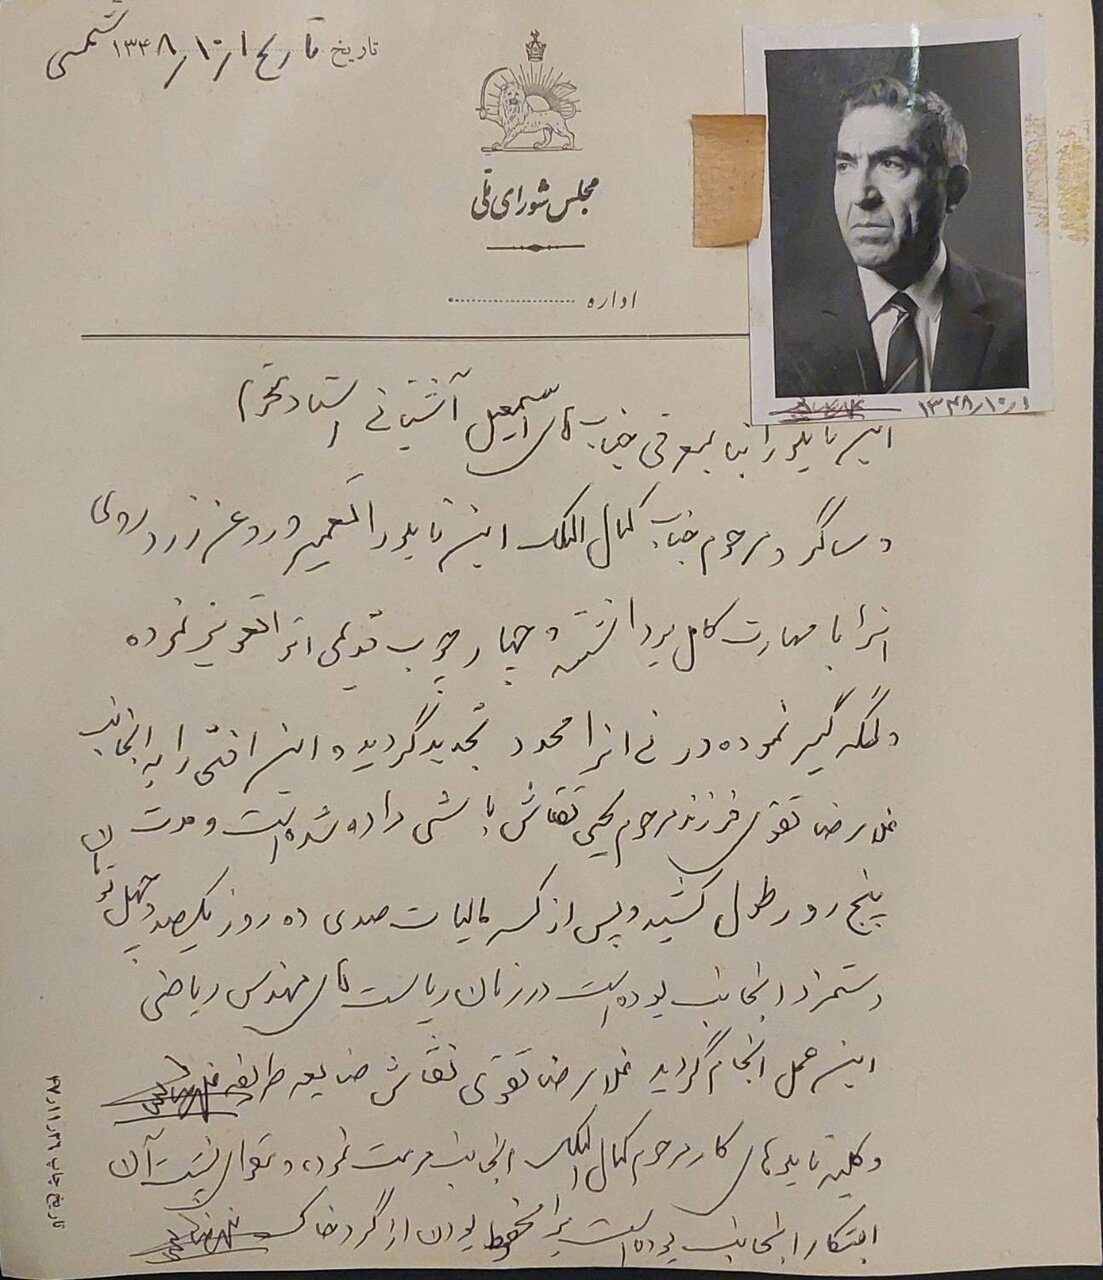 تاریخ تاریخ ۱ر۱۰ر۱۳۴۸ شمسی
مجلس شورای ملی
اداره
۱ر۱۰ر۱۳۴۸
این تابلو را بنا بمعرفی جناب آقای اسمعیل آشتیانی استاد محترم
و شاگرد مرحوم جناب کمال الملک این تابلو را تعمیر و روغن زرد روی
انرا با مهارت کامل برداشته و چهار چوب قدیمی انرا تعویض نموده
و لکه گیری نموده در نی انرا مجدد تجدید گردید و این افتخار را به اینجانب
غلامرضا تقوی فرزند مرحوم یحیی نقاش باشی داده شده است و مدت
پنج روز طول کشید و پس از کسر مالیات صدی ده روز یکصد و چهل تومان
دستمزد اینجانب بوده است در زمان ریاست آقای مهندس ریاضی
این عمل انجام گردید غلامرضا تقوی نقاش صنایع ظریفه
و کلیه تابلوهای کار مرحوم کمال الملک اینجانب مرمت نموده و مقوای پشت آن
ابتکار اینجانب بوده است برای محفوظ بودن از گرد خاک
تاریخ چاپ ۲۶ر۱۱ر۴۷